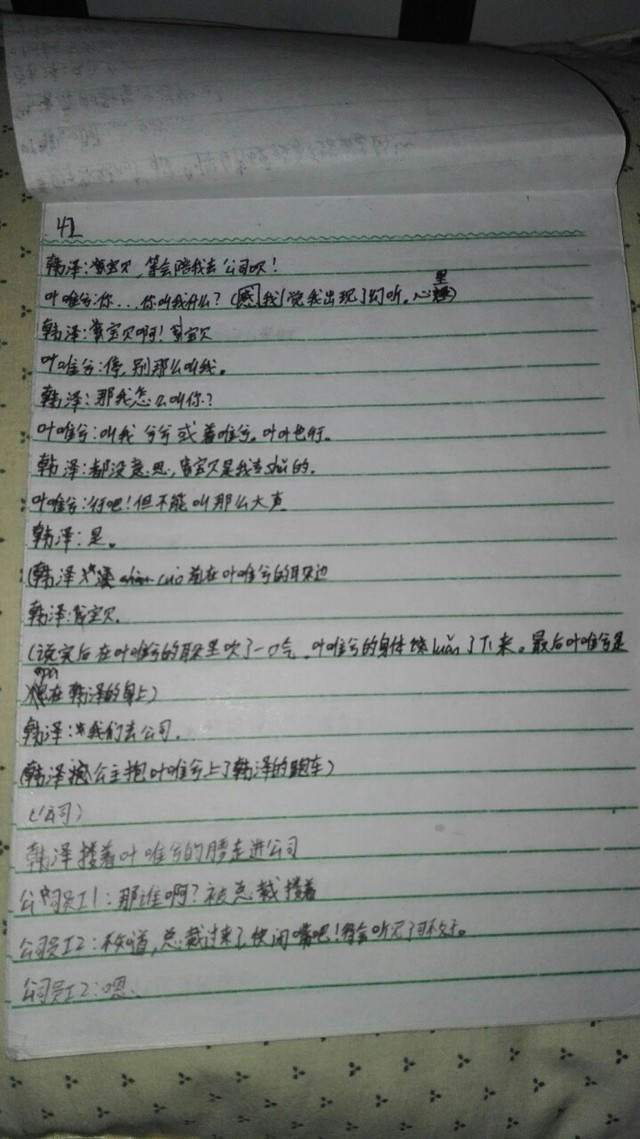 42
韩泽:宝贝,等会陪我去公司吹!
叶唯兮:你...你叫我什么?(我说我出现了幻听。心里)
韩泽:宝贝啊!宝贝
叶唯兮:停,别那么叫我。
韩泽:那我怎么叫你?
叶唯兮:叫我兮兮或着唯兮。叶叶也行。
韩泽:都没意思,宝贝是我专shǔ的。
叶唯兮:行吧!但不能叫那么大声
韩泽:是。
(韩泽 在叶唯兮的耳边
韩泽:宝贝。
(说完后在叶唯兮的耳朵里吹了一口气,叶唯兮的身体ruǎn了下来。最后叶唯兮是
在韩泽的身上)
韩泽:我们去公司。
(韩泽公主抱叶唯兮上了韩泽的跑车)
(公司)
韩泽搂着叶唯兮的腰走进公司
公司员工1:那谁啊?被总裁搂着
公司员工2:不知道,总裁过来了,快闭嘴吧!等会听见了可不好。
公司员工2:嗯。